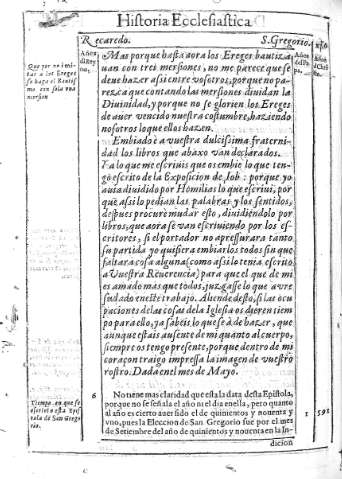 Historia Ecclesiastica
Recaredo.
S. Gregorio.
Años del Rey no.
Años del Pa pa.
Años de Chris to.
Que por no imi tar a los Ereges se haga el Bautis mo con sola una mersion
Mas porque hasta aora los Ereges bautiza
uan con tres mersiones, no me parece que se
deue hazer assi entre vosotros; porque no pa-
rezca que contando las mersiones diuidan la
Diuinidad, y porque no se glorien los Ereges
de auer vencido nuestra costumbre, haziendo
nosotros lo que ellos hazen.
Embiado è a vuestra dulcissima fraterni-
dad los libros que abaxo van declarados.
Ea lo que me escriuis que os embie lo que ten-
go escrito de la Exposicion de Iob: porque yo
auia diuidido por Homilias lo que escriui, por
que assi lo pedian las palabras y los sentidos,
despues procurè mudar esto, diuidiendolo por
libros, que aora se van escriuiendo por los es-
critores, si el portador no apressurara tanto
su partida yo quisiera embiarlos todos sin que
faltara cosa alguna (como assi lo tenia escrito
a Vuestra Reuerencia) para que el que de mi
es amado mas que todos, juzgasse lo que avre
sudado en este trabajo. Allende desto, si las ocu
paciones de las cosas de la Iglesia os dieren tiem
po para ello, ya sabèis lo que se à de hazer, que
aunque estais ausente de mi quanto al cuerpo,
siempre os tengo presente, porque dentro de mi
coraçon traigo impressa la imagen de vuestro
rostro. Dada en el mes de Mayo.
Tiempo en que se escriuio esta Epis tola de San Grego rio.
6
No tiene mas claridad que esta la data desta Epistola,
porque no se señala el año ni el dia en ella, pero quanto
al año es cierto auer sido el de quinientos y nouenta y
vno, pues la Eleccion de San Gregorio fue por el mes
de Setiembre del año de quinientos y nouenta en la In-
1
591
dicion